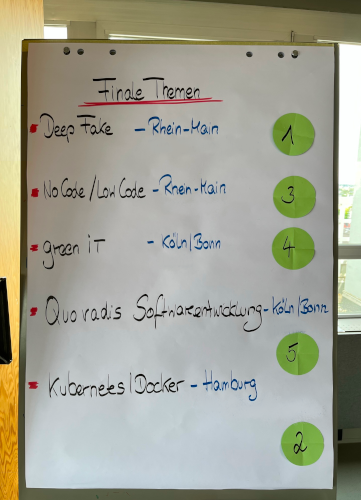 Finale Themen
Deep Fake - Rhein-Main 1
No Code / Low Code - Rhein-Main 3
green iT - Köln/Bonn 4
Quo vadis Softwareentwicklung - Köln/Bonn
5
Kubernetes/Docker - Hamburg
2